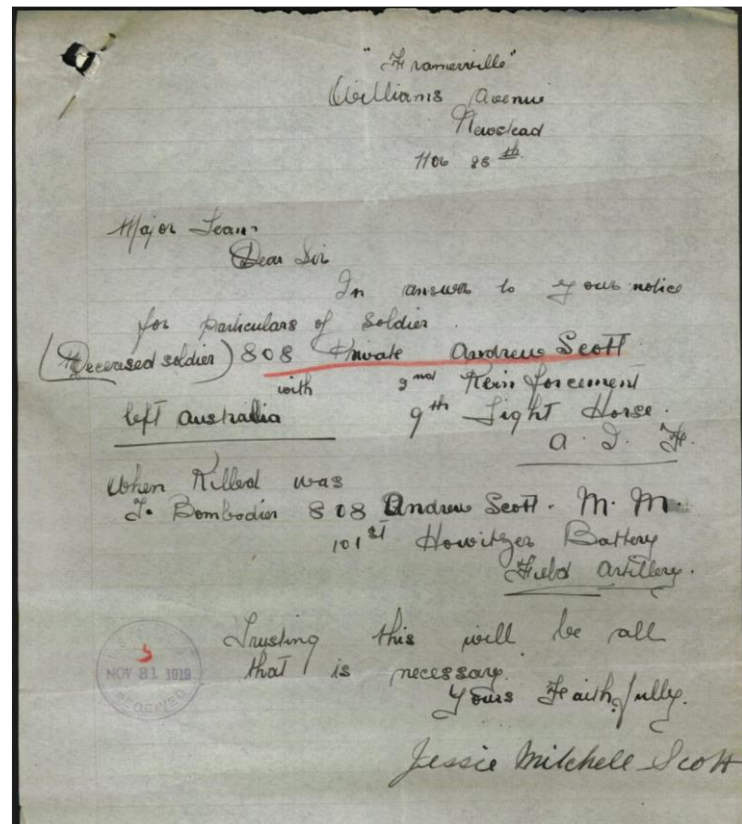 "Framerville"
Williams Avenue
Newstead
Nov 28th
Major Lean.
Dear Sir
In answer to your notice
for particulars of soldier.
(Deceased soldier) 808 Private Andrew Scott
with 2nd Reinforcement
left Australia 9th Light Horse.
A. I. F.
When Killed was
T. Bombadier 808 Andrew Scott. M. M.
101st Howitzer Battery
Field Artillery.
Trusting this will be all
that is necessary.
Yours Faithfully.
Jessie Mitchell Scott
NOV 31 1919
RECEIVED